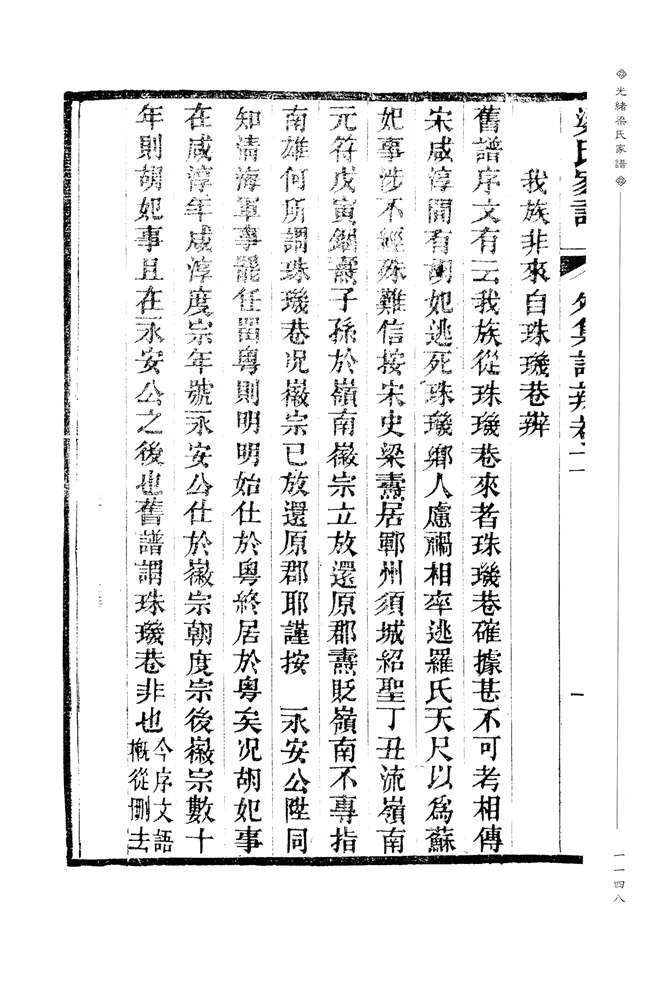 光緒梁氏家譜
一一四八
梁氏家譜 外集譜辨卷二 一
我族非來自珠璣巷辨
舊譜序文有云我族從珠璣巷來者珠璣巷確據甚不可考相傳
宋咸淳間有胡妃逃死珠璣鄉人慮禍相率逃羅氏天尺以爲蘇
妃事涉不經殊難信按宋史梁燾居鄆州須城紹聖丁丑流嶺南
元符戊寅錮燾子孫於嶺南徽宗立放還原郡燾貶嶺南不專指
南雄何所謂珠璣巷况徽宗已放還原郡耶謹按 永安公陞同
知清海軍事罷任留粵則明明始仕於粵終居於粵矣况胡妃事
在咸淳年咸淳度宗年號永安公仕於徽宗朝度宗後徽宗數十
年則胡妃事且在永安公之後也舊譜謂珠璣巷非也今序文語
概從刪去